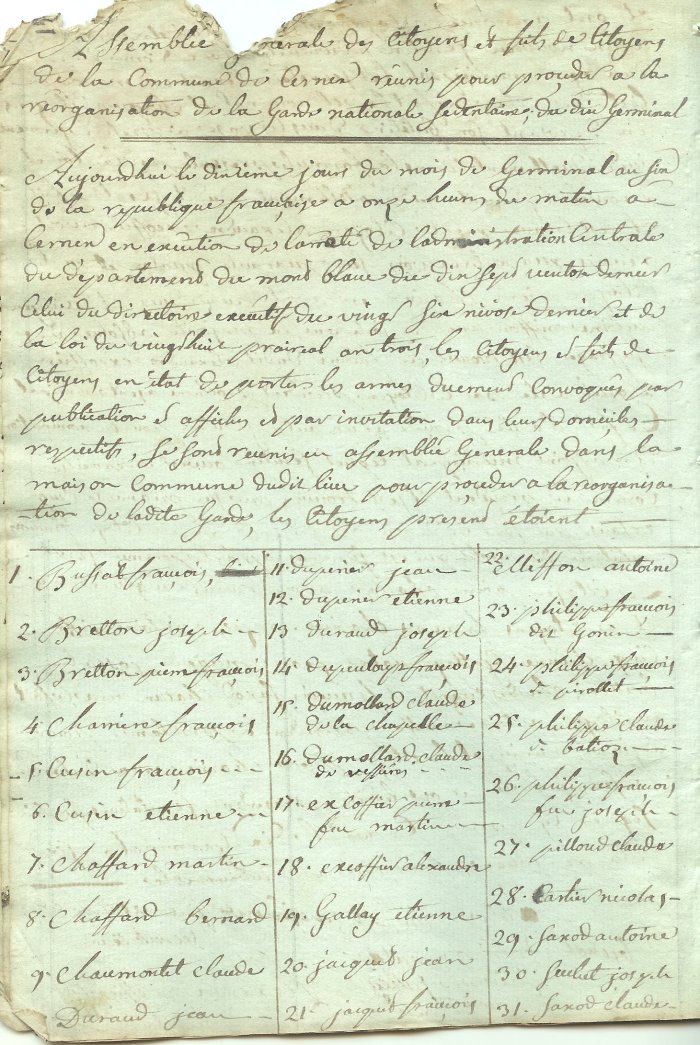 Assemblée generale des Citoyens et fils de Citoyens
de la Commune de Cernex réunis pour proçeder a la
réorganisation de la Garde nationale sedentaire, du dix Germinal
Aujourdhui le dixieme jours du mois de Germinal an six
de la republique française a onze heures du matin a
Cernex en execution de larreté de ladministration Centrale
du département du mond blanc du dix sept ventose dernier
Celui du directoire executif du vingt six nivose dernier et de
la loi du vingt huit praireal an trois, les Citoyens et fils de
Citoyens en état de porter les armes duement Convoqués par
publication et affiches et par invitation dans leurs domiciles
respectifs, se sont reunis en assemblée Generale dans la
maison Commune dudit lieu pour proçeder a la reorganisa-
-tion de ladite Garde, les Citoyens present étoient
1. Bussat françois,
2. Bretton joseph
3. Bretton pierre françois
4. Charriere françois
5. Cusin françois
6. Cusin etienne
7. Chaffard martin
8. Chaffard bernard
9. Chaumontet Claude
Durand jean
11. duperier jean
12. duperier etienne
13. durand joseph
14. dupuloup françois
15. dumollard Claude
de la chapelle
16. dumollard Claude
de
17. excoffier pierre
feu martin
18. excoffier alexandre
19. Gallay etienne
20. jacquet jean
21. jacquet françois
22. antoine
23. philippe françois
dit Gonin
24. philippe françois
d.
25. philippe Claude
d.
26. philippe françois
feu joseph
27. pilloud Claude
28. Cartier nicolas
29. saxod antoine
30. joseph
31. saxod Claude